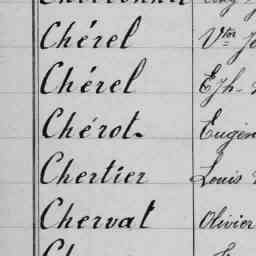 Chérel Vtor
Chérel Ejh.
Chérot Eugèn
Chertier Louis
Chervat Olivier